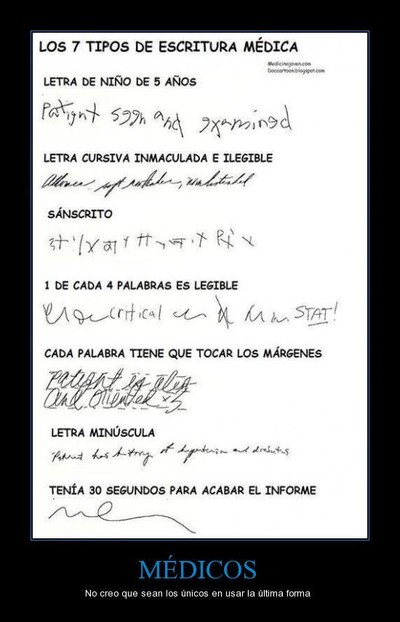 LOS 7 TIPOS DE ESCRITURA MÉDICA
Medicinajoven.com
Doccartoon.blogspot.com
LETRA DE NIÑO DE 5 AÑOS
Patient seen and examined
LETRA CURSIVA INMACULADA E ILEGIBLE
SÁNSCRITO
1 DE CADA 4 PALABRAS ES LEGIBLE
critical STAT!
CADA PALABRA TIENE QUE TOCAR LOS MÁRGENES
Patient is alert
and oriented
LETRA MINÚSCULA
Patient has history of hypertension and diabetes
TENÍA 30 SEGUNDOS PARA ACABAR EL INFORME
MÉDICOS
No creo que sean los únicos en usar la última forma